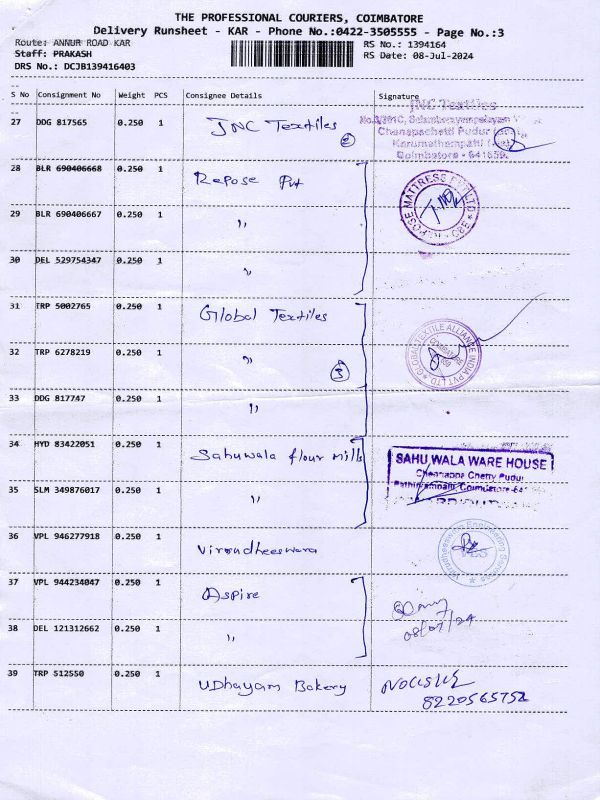 THE PROFESSIONAL COURIERS, COIMBATORE
Delivery Runsheet - KAR - Phone No.:0422-3505555 - Page No.:3
Route: ANNUR ROAD KAR
RS No.: 1394164
Staff: PRAKASH
RS Date: 08-Jul-2024
DRS No.: DCJB139416403
S No Consignment No Weight PCS Consignee Details Signature
27 DDG 817565 0.250 1 JNC Textiles
2
JNC Textiles
Chenapachetti Pudur
Karumathampatti
Coimbatore - 641659.
28 BLR 690406668 0.250 1 Repose Pvt
REPOSE MATTRESS PVT LTD
29 BLR 690406667 0.250 1 ,,
30 DEL 529754347 0.250 1 ,,
31 TRP 5002765 0.250 1 Global Textiles
GLOBAL TEXTILE ALLIANCE INDIA PVT LTD
32 TRP 6278219 0.250 1 ,,
3
33 DDG 817747 0.250 1 ,,
34 HYD 83422051 0.250 1 Sahuwala flour mills
SAHU WALA WARE HOUSE
Chennappa Chetty Pudur
Coimbatore-641
35 SLM 349876017 0.250 1 ,,
36 VPL 946277918 0.250 1 Virundheeswara
Engineering
37 VPL 944234047 0.250 1 Aspire
08/07/24
38 DEL 121312662 0.250 1 ,,
39 TRP 512550 0.250 1 UDhayam Bakery
8220565752